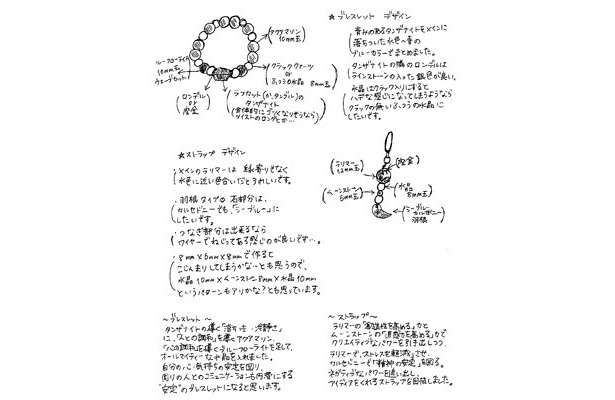 アクアマリン
10mm玉
ブルーフローライト
10mm玉
ウェーブセット
クラッククォーツ
or
ふつうの水晶 8mm玉
ロンデル
or
座金
ラフカット(か、タンブル)の
タンザナイト
全体的にゴツくなりそうなら
ツイストのロングとか…
★ブレスレット デザイン
青みのあるタンザナイトをメインに
落ちついた水色〜青の
ブルーカラーでまとめました。
タンザナイトの隣のロンデルは
ラインストーンの入った銀色が良い。
水晶はクラック入りにすると
ハデな感じになってしまうようなら
クラックの無いふつうの水晶に
したいです。
★ストラップ デザイン
・メインのラリマーは 緑寄りでなく
水色に近い色合いだとうれしいです。
・羽根タイプの石部分は、
カルセドニーでも「シーブルー」に
したいです。
・つなぎ部分は出来るなら
ワイヤーでねじってある感じのが良いです…。
・8mm×6mm×8mmで作ると
こじんまりしてしまうかな…とも思うので、
水晶10mm×ムーンストーン8mm×水晶10mm
というパターンもアリかな?とも思っています。
ラリマー
12mm玉
座金
ムーンストーン
6mm玉
水晶
8mm玉
シーブルー
カルセドニー
羽根
〜ブレスレット〜
タンザナイトの導く「落ち着き・冷静さ」
に、「人との調和」を導くアクアマリン、
「心の調和」を導くブルーフローライトを足して、
オールマイティーな水晶を入れました。
自分の心・気持ちの安定を図り、
周りの人とのコミュニケーションも円滑にする
"安定"のブレスレットになると思います。
〜ストラップ〜
ラリマーの「創造性を高める」力と
ムーンストーンの「直感力を高める」力で
クリエイティブなパワーを引き出しつつ、
ラリマーで、ストレスを「軽減」させ、
カルセドニーで「精神の安定」を図る。
ネガティブなパワーを追い出し、
アイディアをくれるストラップを目指しました。